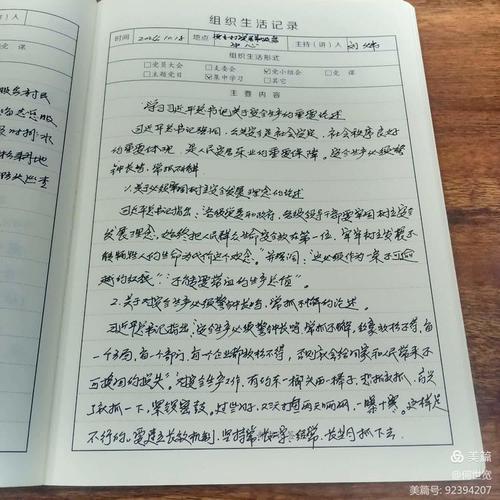 组织生活记录
时间 2024.10.18 地点 主持(讲)人
中心
组织生活形式
□党员大会 □支委会 ☑党小组会 □党 课
□主题党日 ☑集中学习 □其它
主要内容
学习习近平总书记关于安全生产的重要论述
习近平总书记强调,公共安全是社会安定、社会秩序良好
的重要体现,是人民安居乐业的重要保障。安全生产必须警
钟长鸣、常抓不懈
1.关于必须牢固树立安全发展理念的论述
习近平总书记指出:各级党委和政府、各级领导干部要牢固树立安全
发展理念,始终把人民群众生命安全放在第一位,牢牢树立发展不
能以牺牲人的生命为代价这个观念。并强调:“这必须作为一条不可逾
越的红线”:“不能要带血的生产总值”。
2.关于对安全生产必须警钟长鸣、常抓不懈的论述。
习近平总书记指出:安全生产必须警钟长鸣、常抓不懈,丝毫放松不得,每
一个方面、每一个部门、每一个企业都放松不得,否则就会给国家和人民带来不
可挽回的损失。“对安全生产工作,有的东一榔头西一棒子,想抓就抓,高兴
了就抓一下,紧锣密鼓。过些时候,又三天打鱼两天晒网,一曝十寒。这样是
不行的。要建立长效机制,坚持常、长二字,经常、长期抓下去
人)
党 课
美篇
@
美篇号: 92394207